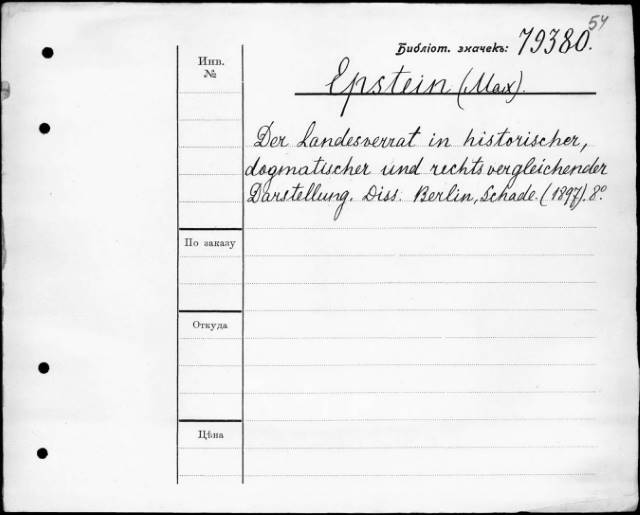 54
Библіот. значекъ: 79380.
Инв.
№
Epstein (Max).
Der Landesverrat in historischer,
dogmatischer und rechtsvergleichender
Darstellung. Diss. Berlin, Schade. (1897). 8º.
По заказу
Откуда
Цѣна